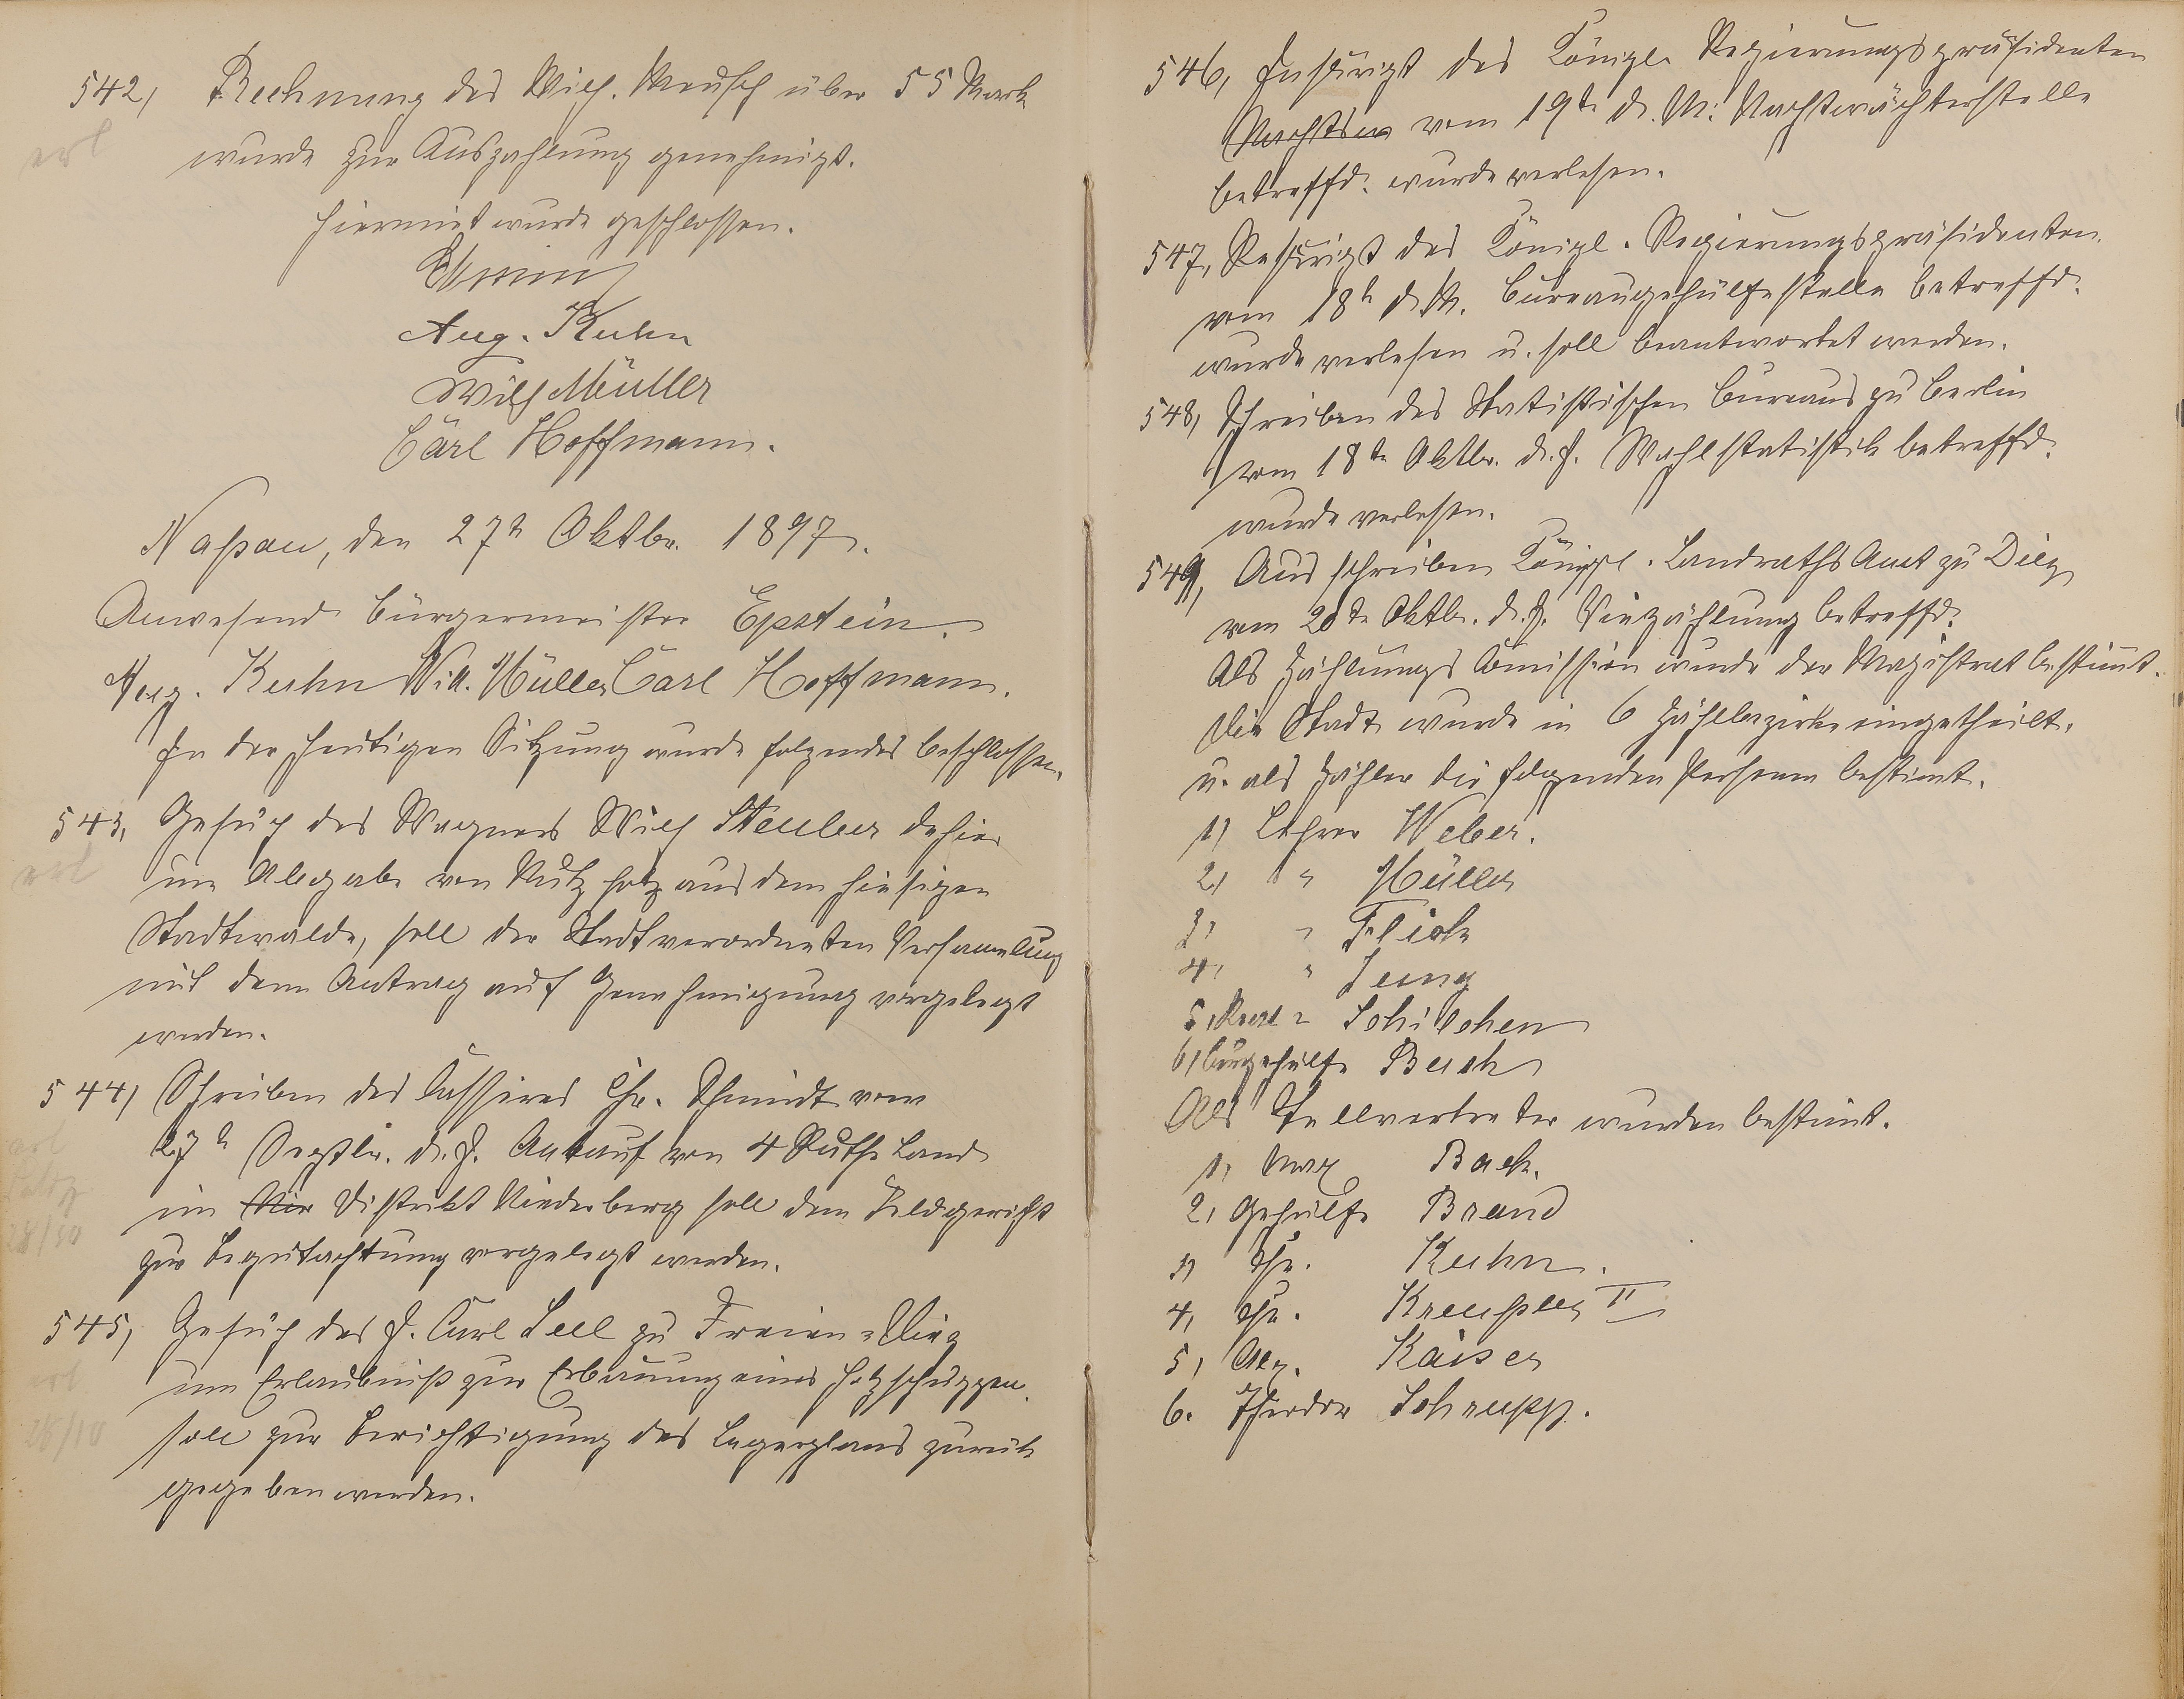 542, Rechnung des Wilh. Mensch über 55 Mark
erl
wurde zur Auszahlung genehmigt.
Hiermit wurde geschlossen.
Aug. Kuhn
Wilh Müller
Carl Hoffmann.
Naßau, den 27t Oktbr. 1897.
Anwesend Bürgermeister Epstein.
Aug. Kuhn Wilh. Müller Carl Hoffmann.
In der heutigen Sitzung wurde folgendes beschlossen.
543, Gesuch des Wagners Wilh Steuber dahier
erl
um Abgabe von Nutzholz aus dem hiesigen
Stadtwalde, soll der Stadtverordneten Versamlung
mit dem Antrag auf Genehmigung vorgelegt
werden.
544, Schreiben des Cassirers Chr. Schmidt vom
erl
27t Septbr. d. J. Ankauf von 4 Ruthe Land
im Nie Distrikt Niederberg soll dem Feldgericht
28/10
zur Begutachtung vorgelegt werden.
545, Gesuch des J. Carl Leel zu Freien-Diez
erl
um Erlaubniß zur Erbauung eines Holzschuppen
28/10
soll zur Berichtigung des Lageplans zurück
gegeben werden.
546, Inskript des Königl. Regierungspräsidenten
vom 19te d. M: Nachtwächterstelle
betreffd. wurde verlesen.
547, Reskript des Königl. Regierungspräsidenten
vom 18t d. M. Bureaugehülfestelle betreffd.
wurde verlesen u. soll beantwortet werden.
548, Schreiben des Statistischen Bureaus zu Berlin
vom 18te Oktbr. d. J. Wahlstatistik betreffd.
wurde verlesen.
549, Ausschreiben Königl. Landraths Amt zu Diez
vom 20te Oktbr. d. J. Viezählung betreffd.
Als Zählungs Comission wurde der Magistrat bestimt.
Die Stadt wurde in 6 Zählbezirke eingetheilt,
u. als Zähler die folgenden Personen bestimt.
1) Lehrer Weber.
2, " Müller
3, " Flick
4, " Jung
5, Real " Schilchen
6, Bürgehülfe Busch
Als Stellvertreter wurden bestimt.
1, Max Bach.
2, Gehülfe Brand
3, Chr. Kuhn.
4, Chr. Kreußler II
5, Aug. Kaiser
6. Theodor Schrupp.